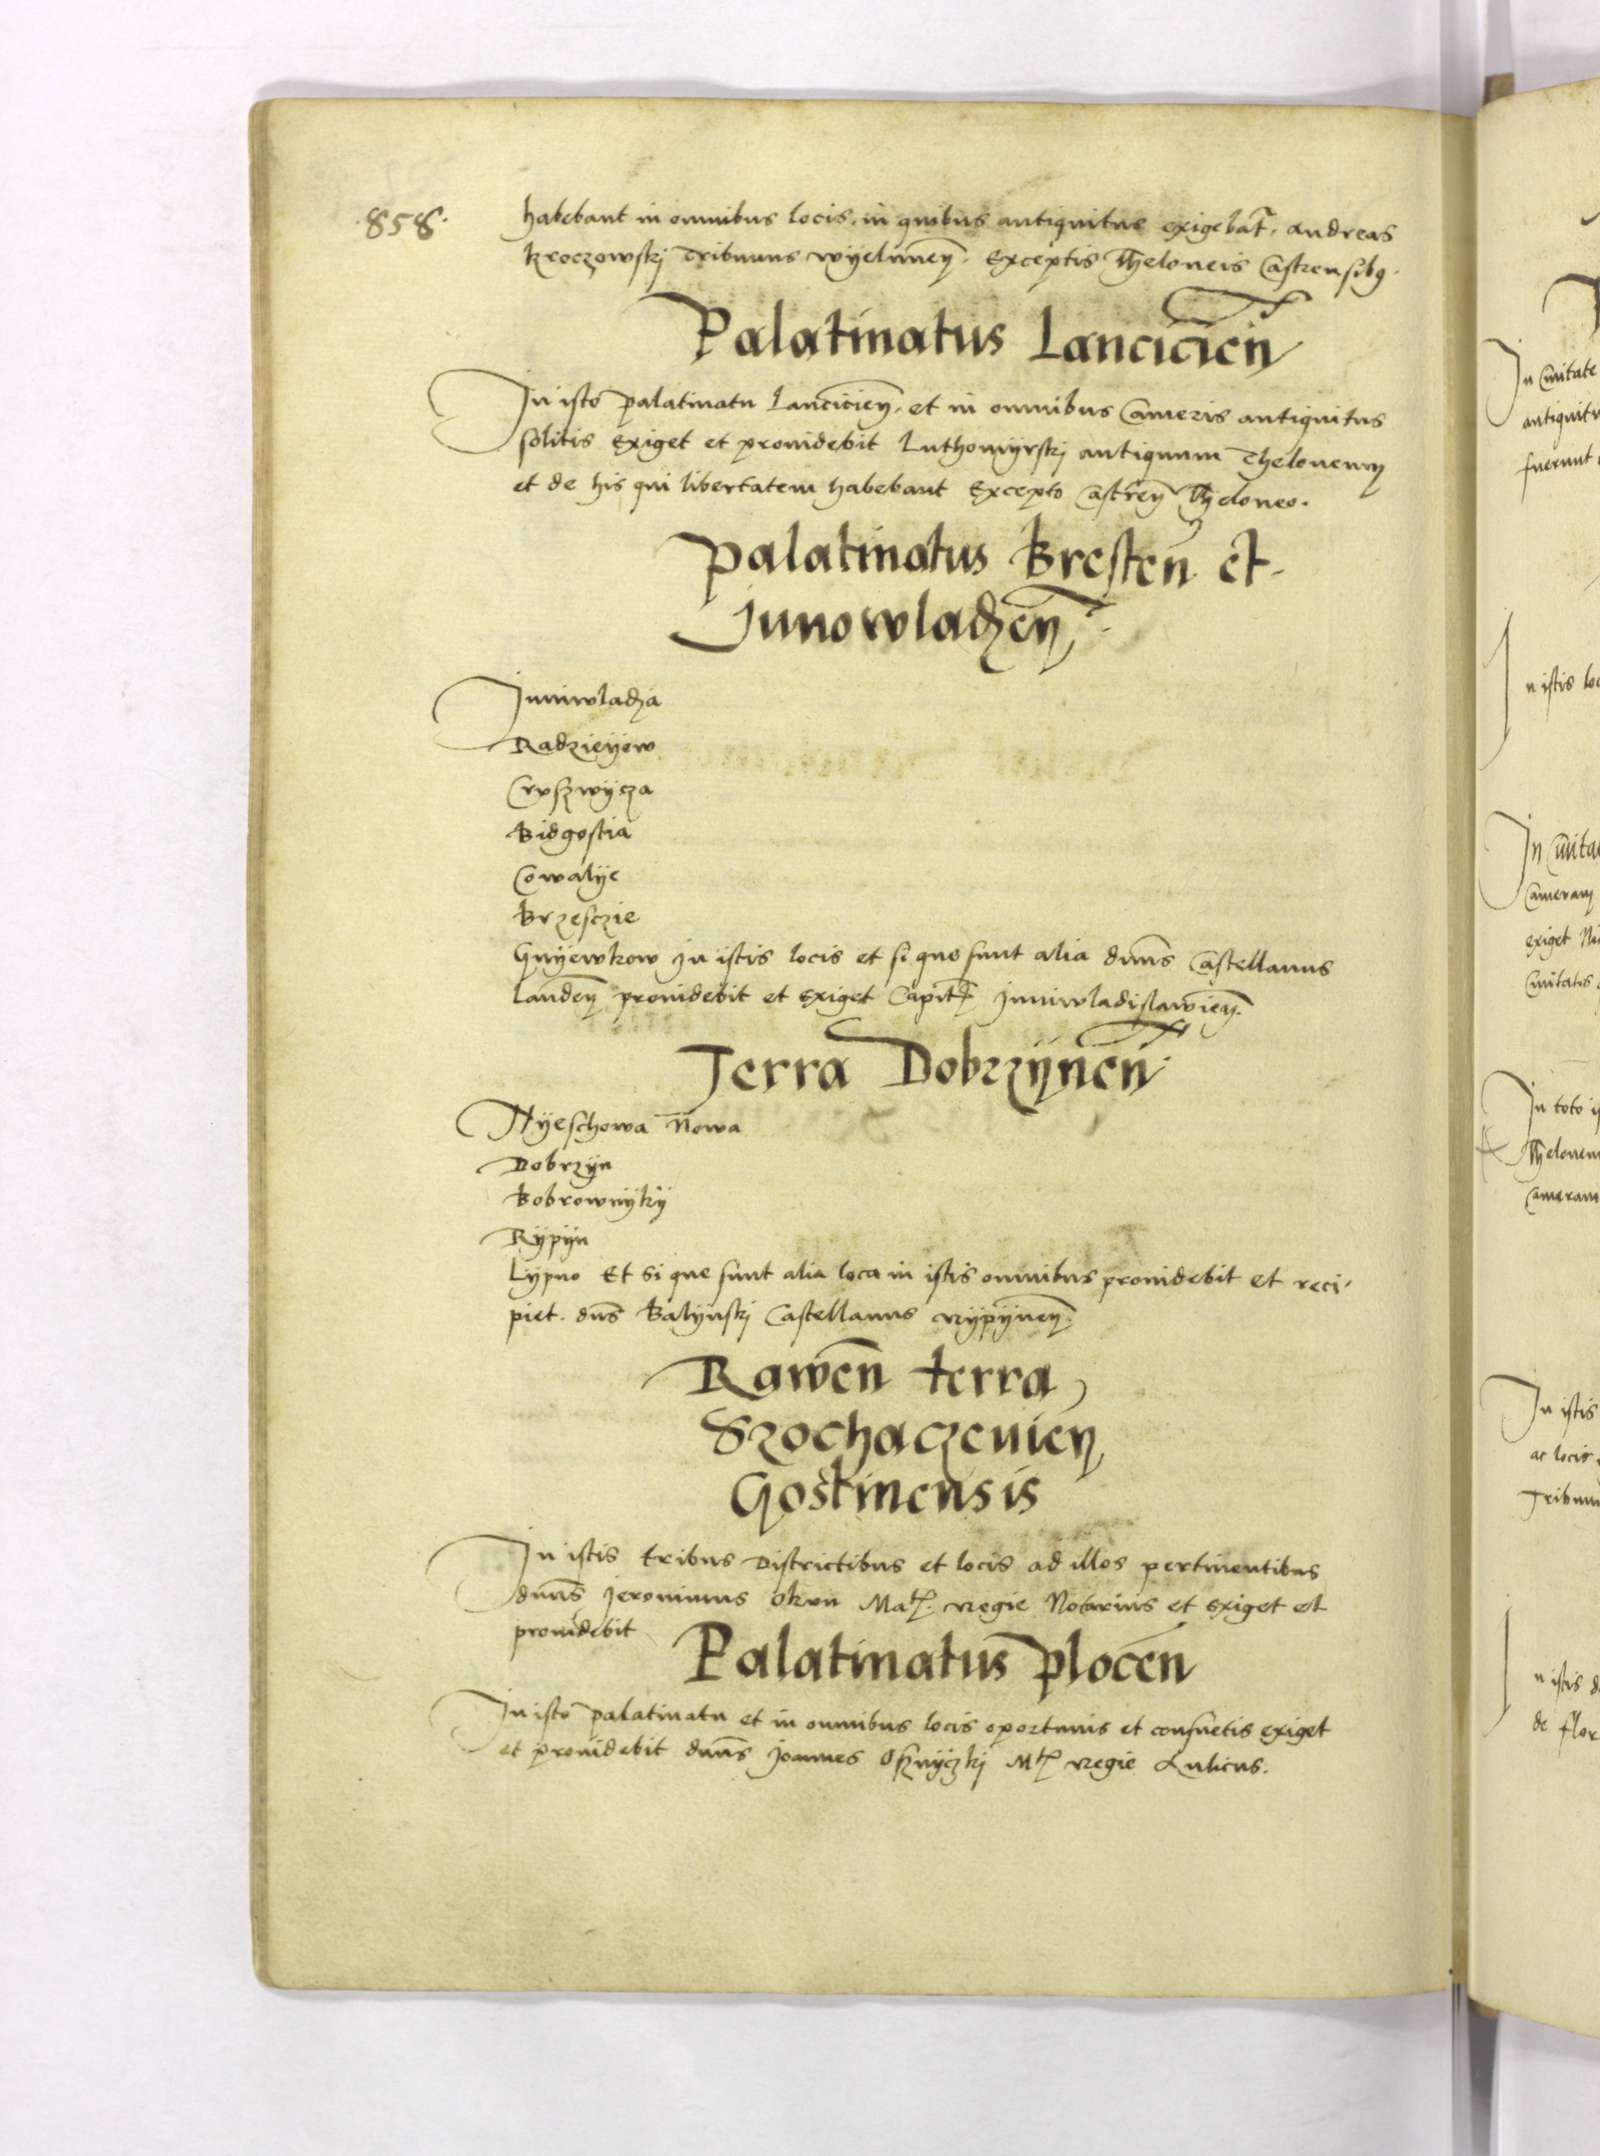 .858.
habebant in omnibus locis, in quibus antiquitus exigebat̃. Andreas
kroczowskj Tribunus wyelunen̄. Exceptis Theloneis Castrensibꝯ.
Palatinatus Lancicien̄
In isto palatinatu Lancicien̄, et in omnibus Cameris antiquitus
solitis Exiget et prouidebit Luthomyrskj antiquum Theloneum
et de his qui libertatem habebant Excepto Castren̄ Theloneo.
Palatinatus Bresten̄ et
Junowladzen̄
Juniwladzia
Radzieyow
Cruszwycza
Bidgostia
Cowalye
Brzesczie
Gnyewkow In istis locis et si que sunt alia dnūs Castellanus
Landen̄ prouidebit et exiget Capitꝭ Juniwladislawien̄.
Terra Dobrzynen̄
Nyeschowa Nowa
Dobrzyn
Bobrownyky
Rypyn
Lypno Et si que sunt alia loca in istis omnibus prouidebit et reci-
piet. dn̄s Balynskj Castellanus Rypynen̄.
Rawen̄ terra
Szochaczeuien̄
Gostinensis
In istis tribus Districtibus et locis ad illos pertinentibus
dnūs Jeronimus Okun Matꝭ. Regie Notarius et exiget et
prouidebit
Palatinatus plocen̄
In isto palatinatu et in omnibus locis oportunis et consuetis exiget
et prouidebit dnūs Joannes Mtꝭ Regie Aulicus.
In ciuitate
antiquit
fuerunt
n istis loc
In ciuita
Cameram
exiget
Ciuitatis
In toto
Thelonem
Cameram
In istis
ac locis
Tribun
n istis
de flor